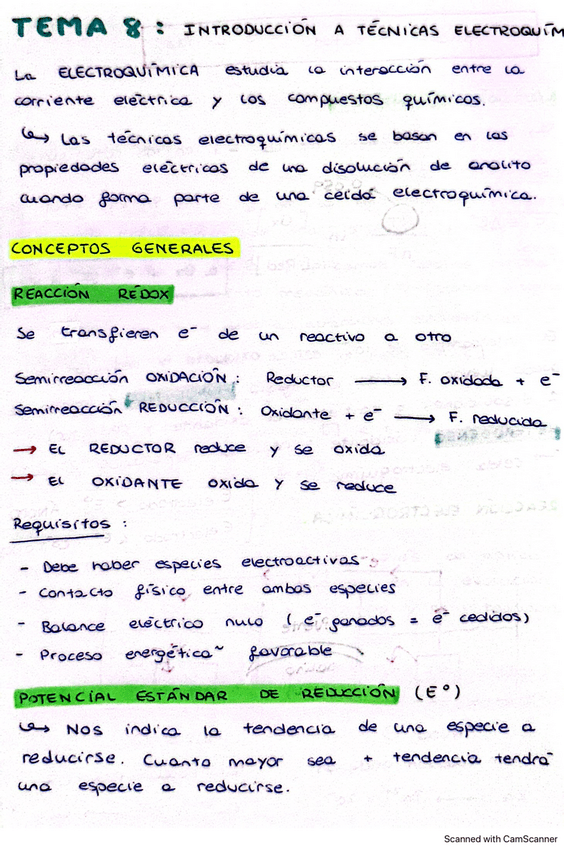 TEMA 8 : INTRODUCCIÓN A TÉCNICAS ELECTROQUÍM
La ELECTROQUÍMICA estudia la interacción entre la
corriente eléctrica y los compuestos químicos.
↳ Las técnicas electroquímicas se basan en las
propiedades eléctricas de una disolución de analito
cuando forma parte de una celda electroquímica.
CONCEPTOS GENERALES
REACCIÓN REDOX
Se transfieren e⁻ de un reactivo a otro
Semirreacción OXIDACIÓN : Reductor → F. oxidada + e⁻
Semirreacción REDUCCIÓN : Oxidante + e⁻ → F. reducida
→ El REDUCTOR reduce y se oxida
→ El OXIDANTE oxida y se reduce
Requisitos :
- Debe haber especies electroactivas
- Contacto físico entre ambas especies
- Balance eléctrico nulo ( e⁻ ganados = e⁻ cedidos)
- Proceso energética~ favorable
POTENCIAL ESTÁNDAR DE REDUCCIÓN (E°)
↳ Nos indica la tendencia de una especie a
reducirse. Cuanto mayor sea + tendencia tendrá
una especie a reducirse.
Scanned with CamScanner